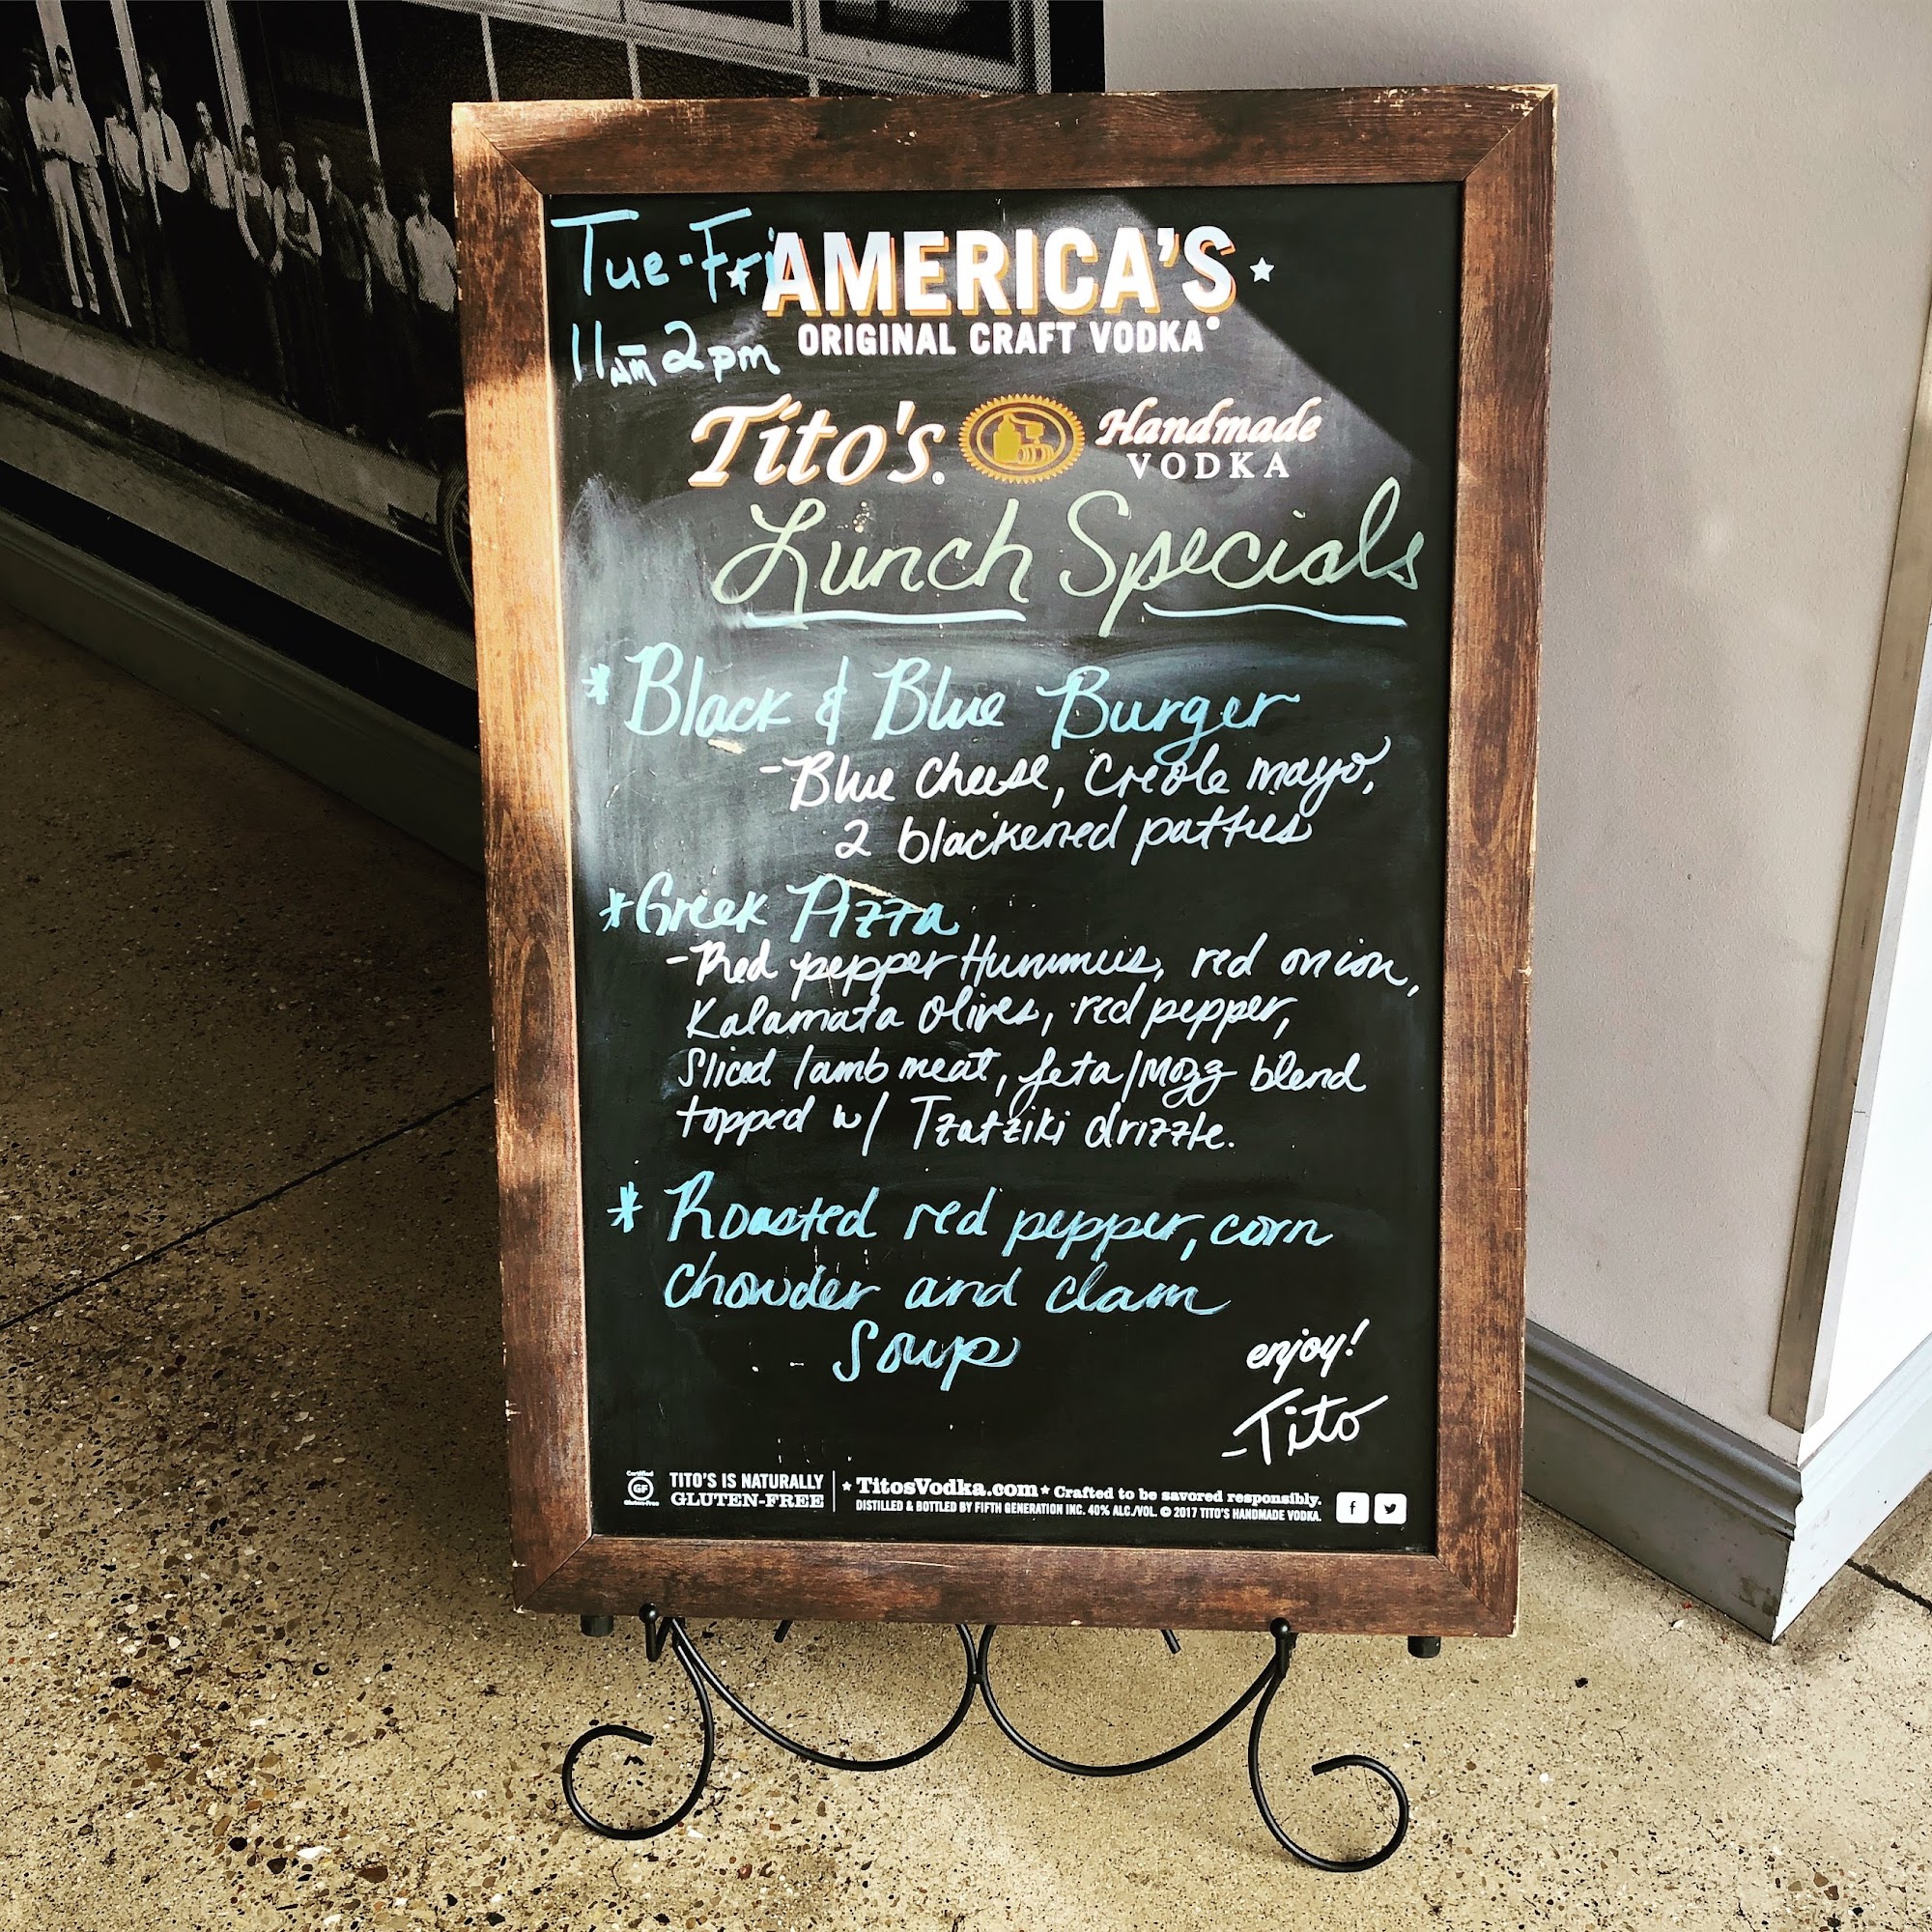 Tue-Fri
11am-2pm
AMERICA'S
ORIGINAL CRAFT VODKA®
Tito's® Handmade
VODKA
Lunch Specials
* Black & Blue Burger
- Blue cheese, Creole mayo,
2 blackened patties
* Greek Pizza
- Red pepper Hummus, red onion,
Kalamata Olives, red pepper,
Sliced lamb meat, feta/Mozz blend
topped w/ Tzatziki drizzle.
* Roasted red pepper, corn
chowder and clam
Soup
enjoy!
-Tito
Certified
GF
Gluten-Free
TITO'S IS NATURALLY
GLUTEN-FREE
TitosVodka.com ★ Crafted to be savored responsibly.
DISTILLED & BOTTLED BY FIFTH GENERATION INC. 40% ALC./VOL. © 2017 TITO'S HANDMADE VODKA.